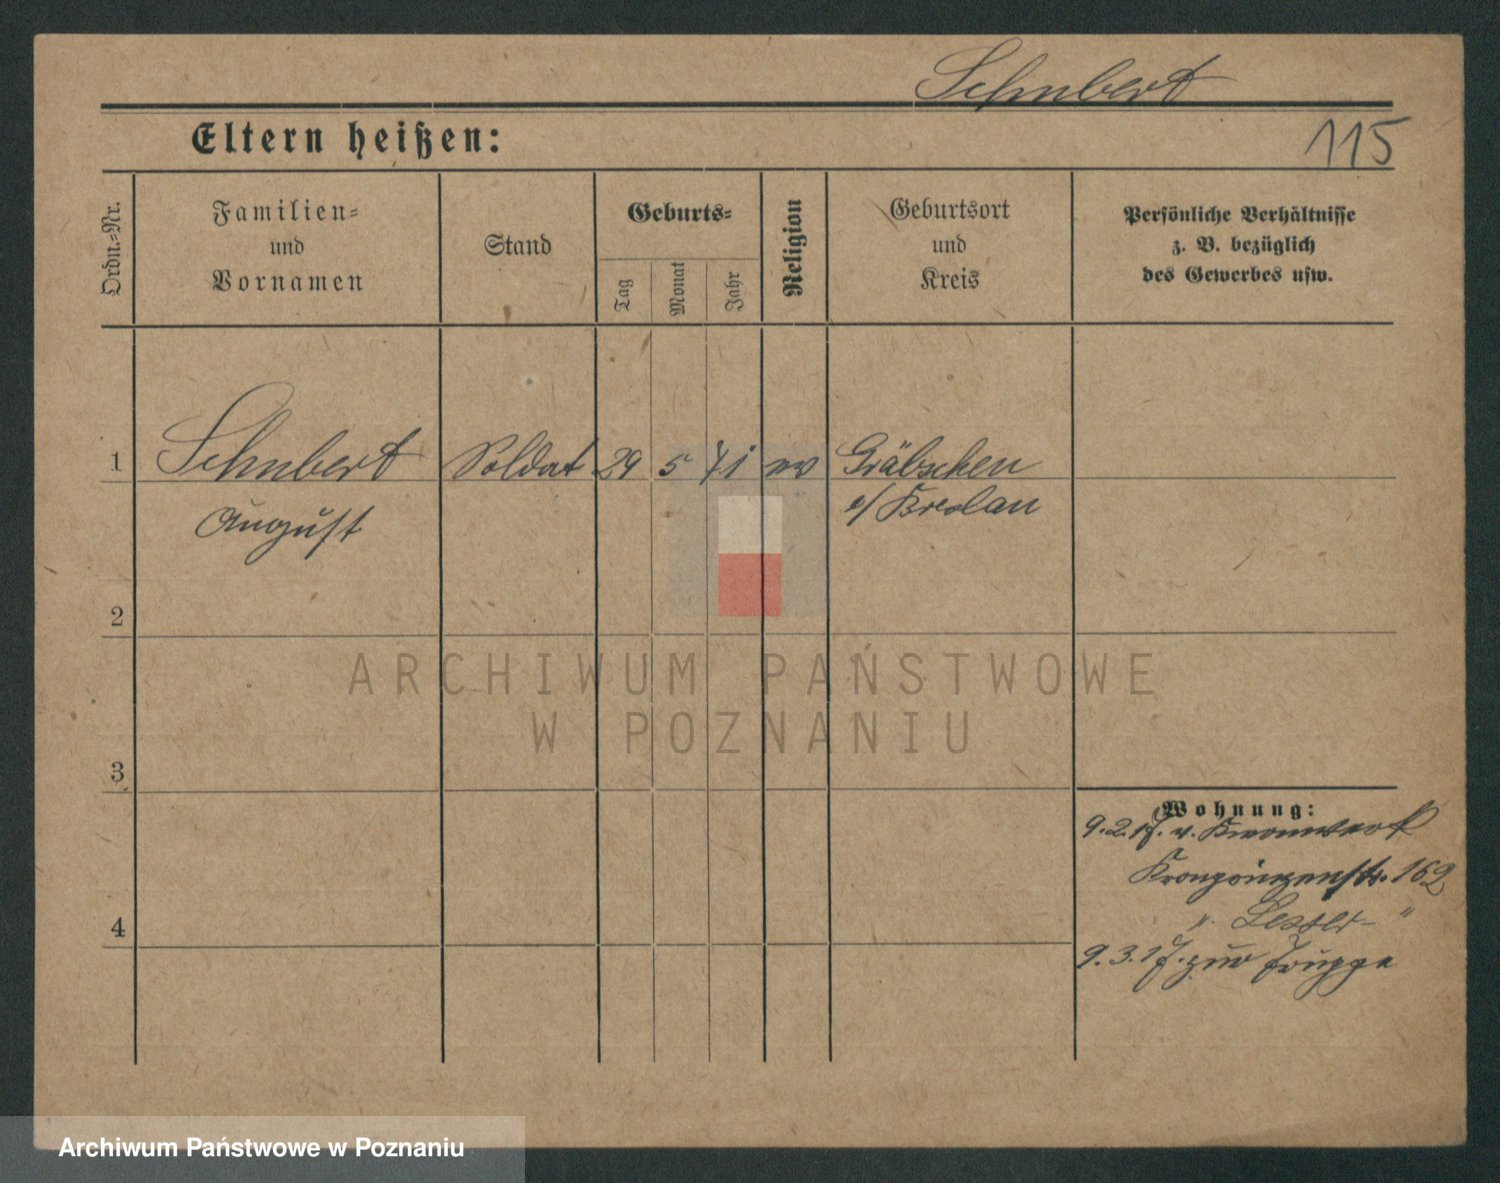 Schubert
Eltern heißen:
115
Ordn.-Nr.
Familien-
und
Vornamen
Stand
Geburts-
Tag
Monat
Jahr
Religion
Geburtsort
und
Kreis
Persönliche Verhältnisse
z. B. bezüglich
des Gewerbes usw.
1
Schubert Soldat 29 5 71 ev Gräbschen
August
Breslau
2
ARCHIWUM PAŃSTWOWE
W POZNANIU
3
Wohnung:
9.2.17. v. Kronwerk
Kronprinzenstr. 162
9.3.17. zur Truppe
4
Archiwum Państwowe w Poznaniu